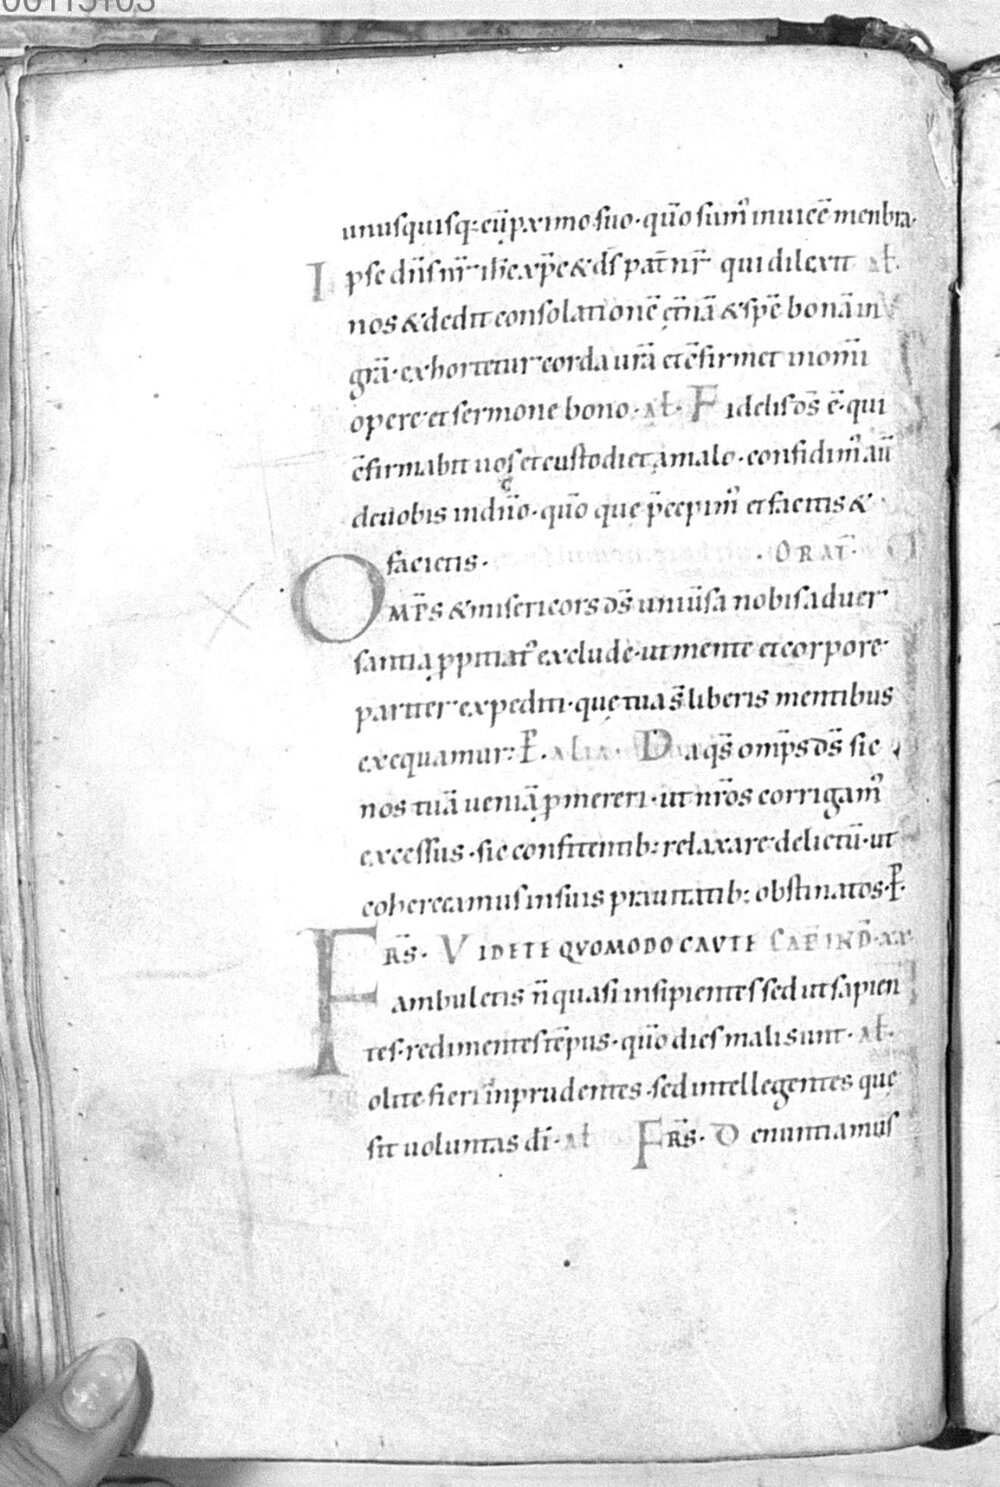 00115103
unusquisq; cū pximo suo · qūo sum᾿ inuicē menbra ·
Ipse dn̄s nr̄ ih̄c xp̄c & ds̄ pat̄ nr̄ qui dilexit aƚ ·
nos & dedit consolationē ęt̄nā & spē bonā in
grā · exhortetur corda ur̄a et c̄firmet in om̄i
opere et sermone bono · aƚ · Fidelis ds̄ ē · qui
c̄firmabit uos et custodiet a malo · confidim᾿ aū
de uobis in dn̄o · qūo quę p̄cepim᾿ et facitis &
facietis · · ORAT̄ ·
OMP̄S & misericors ds̄ uniūsa nobis aduer
santia ꝓpitiat᾿ exclude · ut mente et corpore
pariter expediti · quę tua s̄ liberis mentibus
exequamur : P̄ · alia · Da qs̄ omp̄s ds̄ sic
nos tuā ueniā ꝓmereri · ut nr̄os corrigam᾿
excessus · sic confitentib; relaxare delictū · ut
coherceamus in suis prauitatib; obstinatos · P̄ ·
FRS̄ · VIDETE QVOMODO CAVTE CAP̄ IN D̄ · XX ·
ambuletis n̄ quasi insipientes sed ut sapien
tes · redimentes tēpus · qūo dies mali sunt · aƚ ·
olite fieri inprudentes · sed intellegentes quę
sit uoluntas dī · aƚ FRS̄ · Denuntiamus